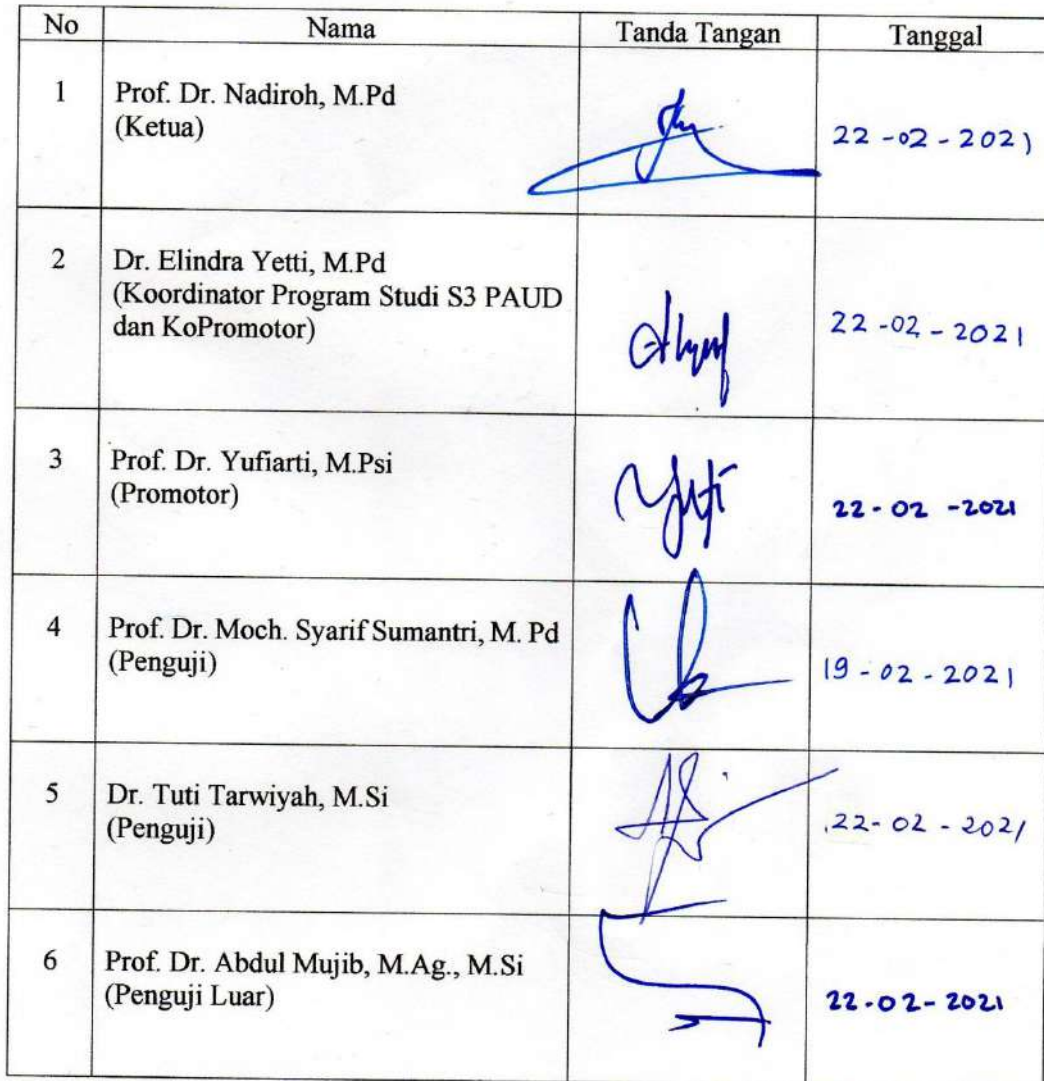 No Nama Tanda Tangan Tanggal
1 Prof. Dr. Nadiroh, M.Pd
(Ketua)
22-02-2021
2 Dr. Elindra Yetti, M.Pd
(Koordinator Program Studi S3 PAUD
dan KoPromotor)
22-02-2021
3 Prof. Dr. Yufiarti, M.Psi
(Promotor)
22-02-2021
4 Prof. Dr. Moch. Syarif Sumantri, M. Pd
(Penguji)
19-02-2021
5 Dr. Tuti Tarwiyah, M.Si
(Penguji)
22-02-2021
6 Prof. Dr. Abdul Mujib, M.Ag., M.Si
(Penguji Luar)
22-02-2021